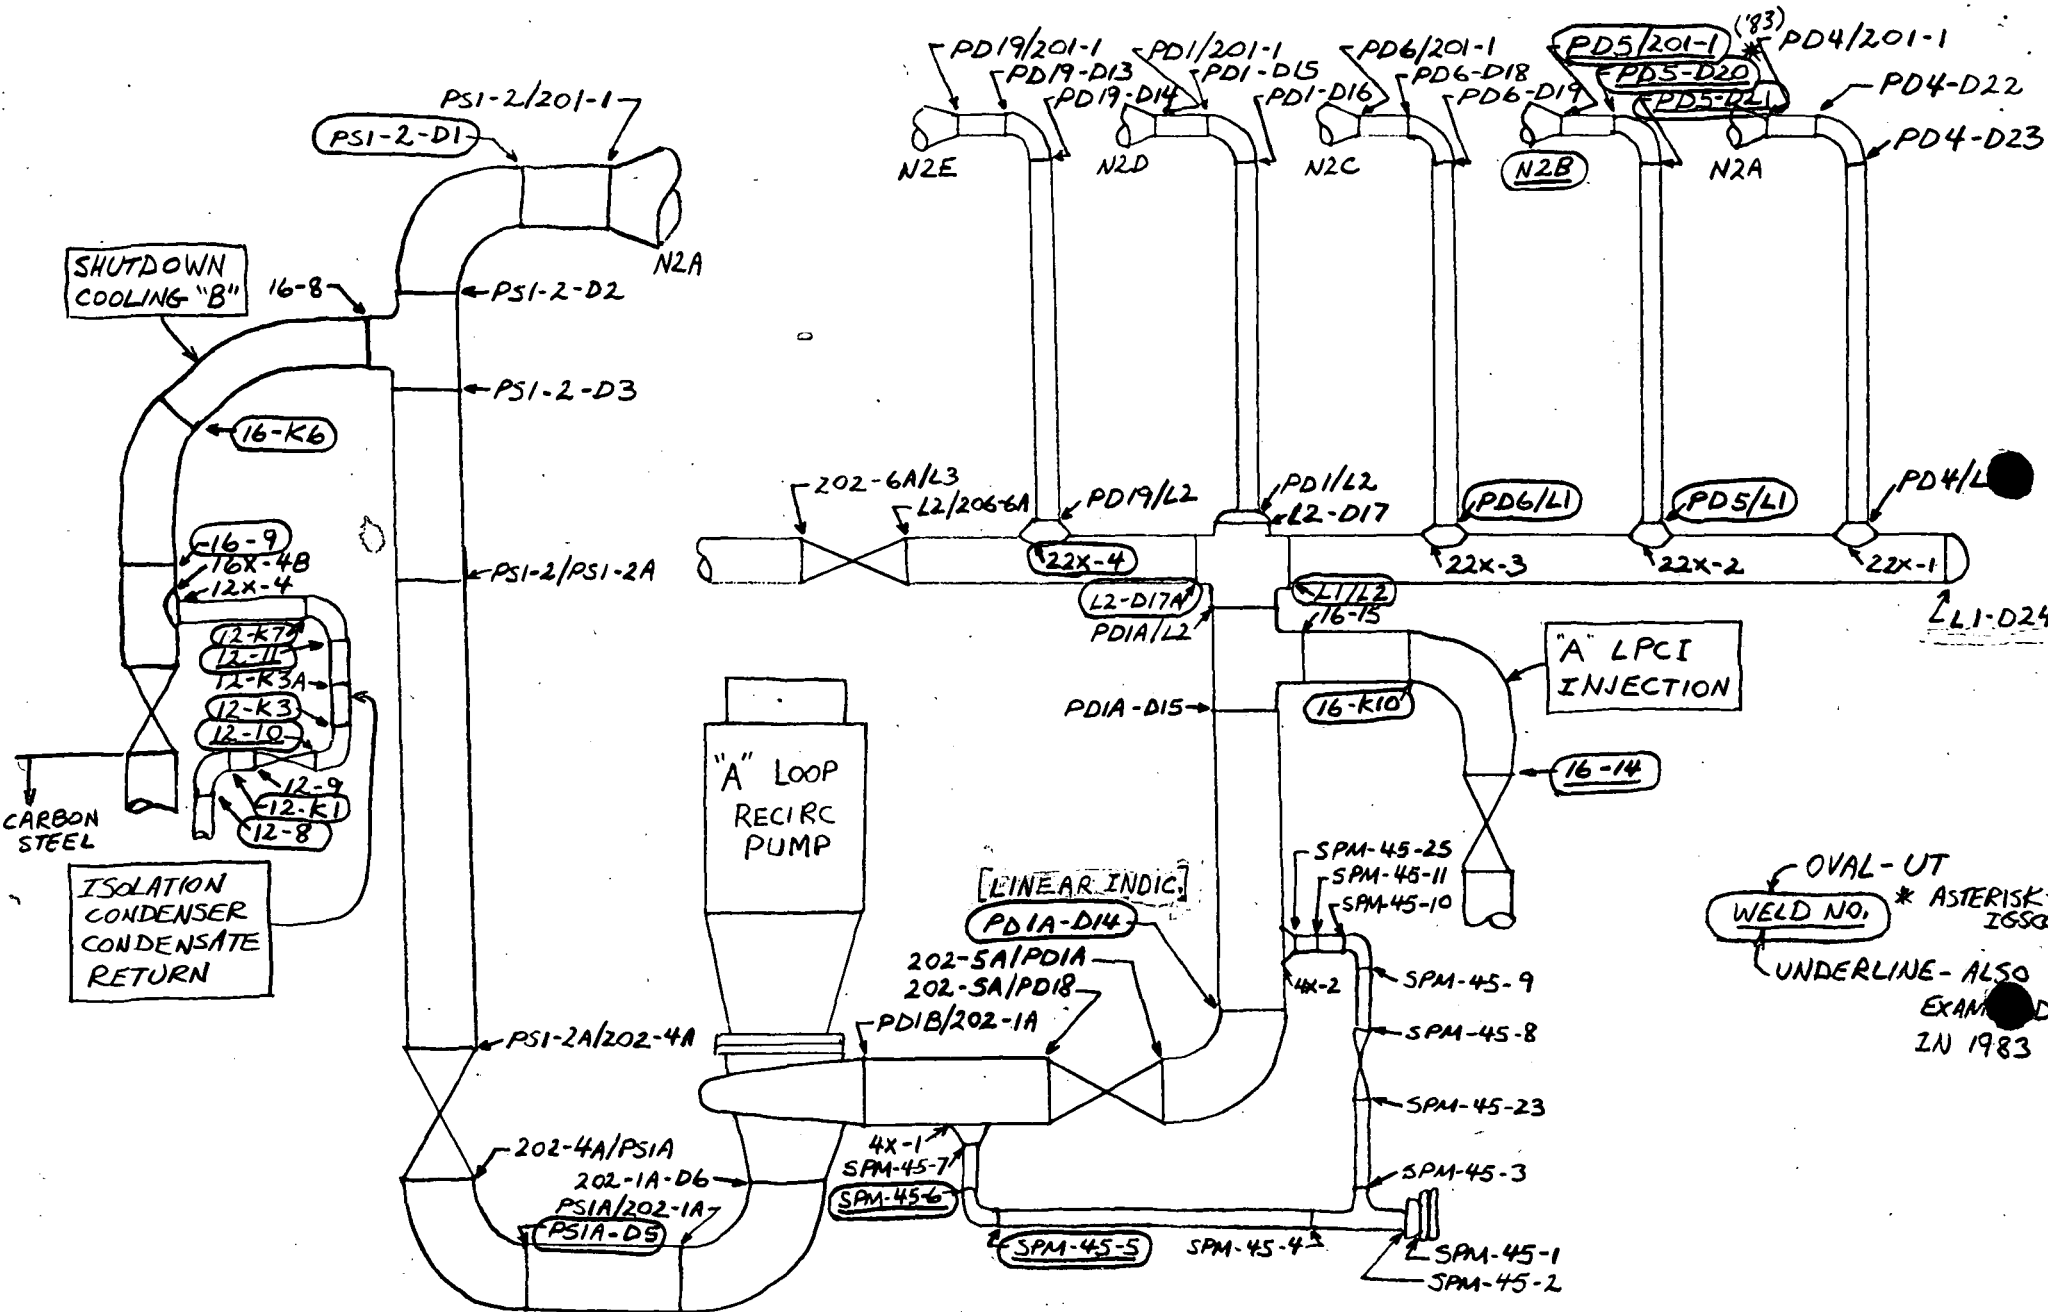 PS1-2/201-1
PS1-2-D1
N2A
SHUTDOWN
COOLING "B"
16-8
PS1-2-D2
PS1-2-D3
16-K6
16-9
16X-4B
12X-4
PS1-2/PS1-2A
12-K7
12-11
12-K3A
12-K3
12-10
12-9
12-K1
12-8
CARBON
STEEL
ISOLATION
CONDENSER
CONDENSATE
RETURN
PS1-2A/202-4A
202-4A/PS1A
202-1A-D6
PS1A/202-1A
PS1A-D5
"A" LOOP
RECIRC
PUMP
PD19/201-1
PD19-D13
PD19-D14
N2E
PD1/201-1
PD1-D15
PD1-D16
N2D
PD6/201-1
PD6-D18
PD6-D19
N2C
PD5/201-1
('83)
*
PD5-D20
PD5-D21
N2B
PD4/201-1
PD4-D22
PD4-D23
N2A
202-6A/L3
L2/206-6A
PD19/L2
22X-4
PD1/L2
L2-D17
PD6/L1
22X-3
PD5/L1
22X-2
PD4/L
22X-1
L1-D24
L2-D17A
L1/L2
PD1A/L2
16-15
PD1A-D15
16-K10
"A" LPCI
INJECTION
16-14
[LINEAR INDIC.]
PD1A-D14
202-5A/PD1A
202-5A/PD18
PD1B/202-1A
SPM-45-25
SPM-45-11
SPM-45-10
4X-2
SPM-45-9
SPM-45-8
SPM-45-23
SPM-45-3
4X-1
SPM-45-7
SPM-45-6
SPM-45-5
SPM-45-4
SPM-45-1
SPM-45-2
OVAL-UT
* ASTERISK-
WELD NO.
UNDERLINE- ALSO
IN 1983